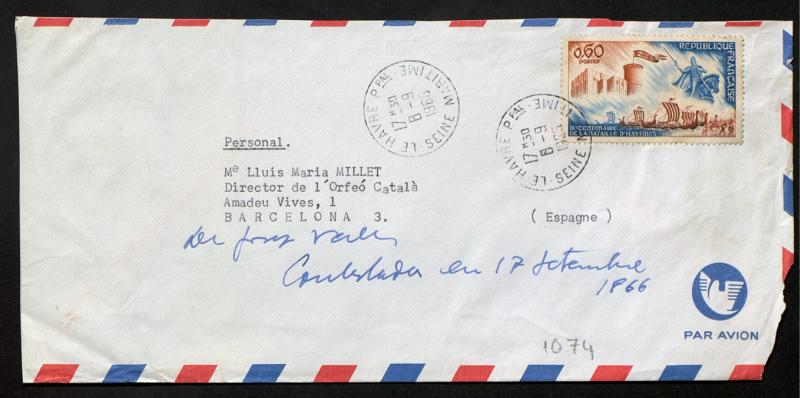 0,60
POSTES
REPUBLIQUE FRANCAISE
IXe CENTENAIRE
DE LA BATAILLE D'HASTINGS
LE HAVRE Ppal - SEINE MARITIME
17 H30
8 - 9
1966
LE HAVRE Ppal - SEINE MARITIME
17 H30
8 - 9
1966
Personal.
Me Lluis Maria MILLET
Director de l'Orfeó Català
Amadeu Vives, 1
BARCELONA 3.
( Espagne )
De Josep Valls
Contestada en 17 setembre
1966
PAR AVION
1074